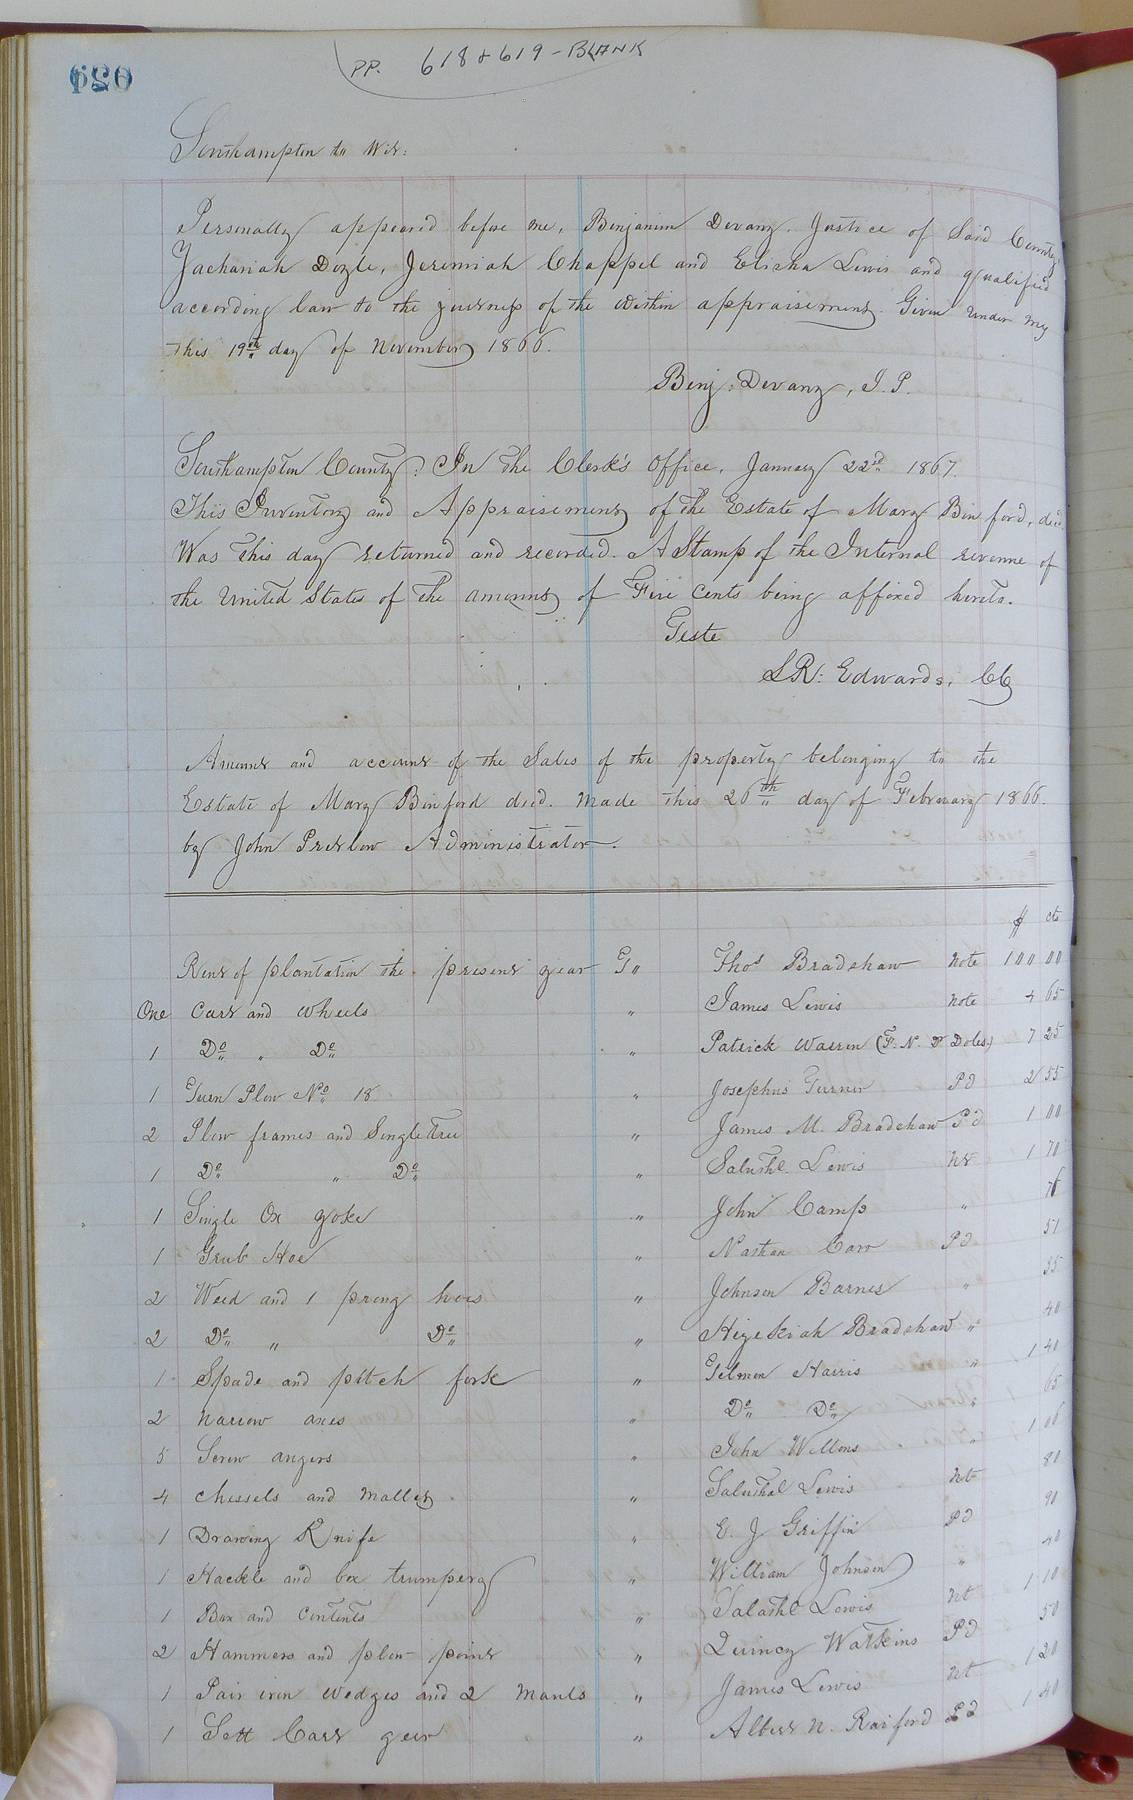 620
PP. 618 & 619 - BLANK
Southampton to Wit:
Personally appeared before me, Benjamin Devany. Justice of Said County,
Zachariah Doyle, Jeremiah Chappel and Elisha Lewis and qualified
according law to the of the within appraisement. Given under my
this 19th day of November 1866.
Benj: Devany, J. P.
Southampton County: In the Clerk's Office, January 22nd 1867.
This Inventory and Appraisement of the Estate of Mary Binford, decd.
Was this day returned and recorded. A Stamp of the Internal revenue of
the United States of the amount of Five cents being affixed hereto.
Teste
LR: Edwards, CC
Amount and account of the Sales of the property belonging to the
Estate of Mary Binford decd. made this 26th day of February 1866.
by John Pretlow Administrator.
$ cts
Rent of plantation the present year To " Thos Bradshaw Note 100 00
One Cart and wheels " James Lewis Note 4 65
1 Do " Do " Patrick Warren (F. N. D Doles) 7 25
1 Turn Plow No 18 " Josephus Turner Pd 2 55
2 Plow frames and Singletree " James M. Bradshaw Pd 1 00
1 Do " Do " Salathl. Lewis Nt 1 70
1 Single Ox yoke " John Camp " 76
1 Grub Hoe " Nathan Carr Pd 51
2 Weed and 1 prong hoes " Johnson Barnes " 35
2 Do " Do " Hezekiah Bradshaw " 40
1 Spade and pitch fork " Tilmon Harris " 1 40
2 narrow axes " Do Do " 65
5 Screw augers " John " 1 06
4 Chessels and Mallet " Salathal Lewis Nt 80
1 Drawing Knife " E. J Griffin Pd 90
1 Hackle and box trumpery " William Johnson " 40
1 Box and Contents " Salathl Lewis Nt 1 10
2 Hammers and plow point " Quincy Watkins Pd 50
1 Pair iron Wedges and 2 Mauls " James Lewis Nt 1 20
1 Sett Cart gear " Albert N. Raiford Pd 1 40